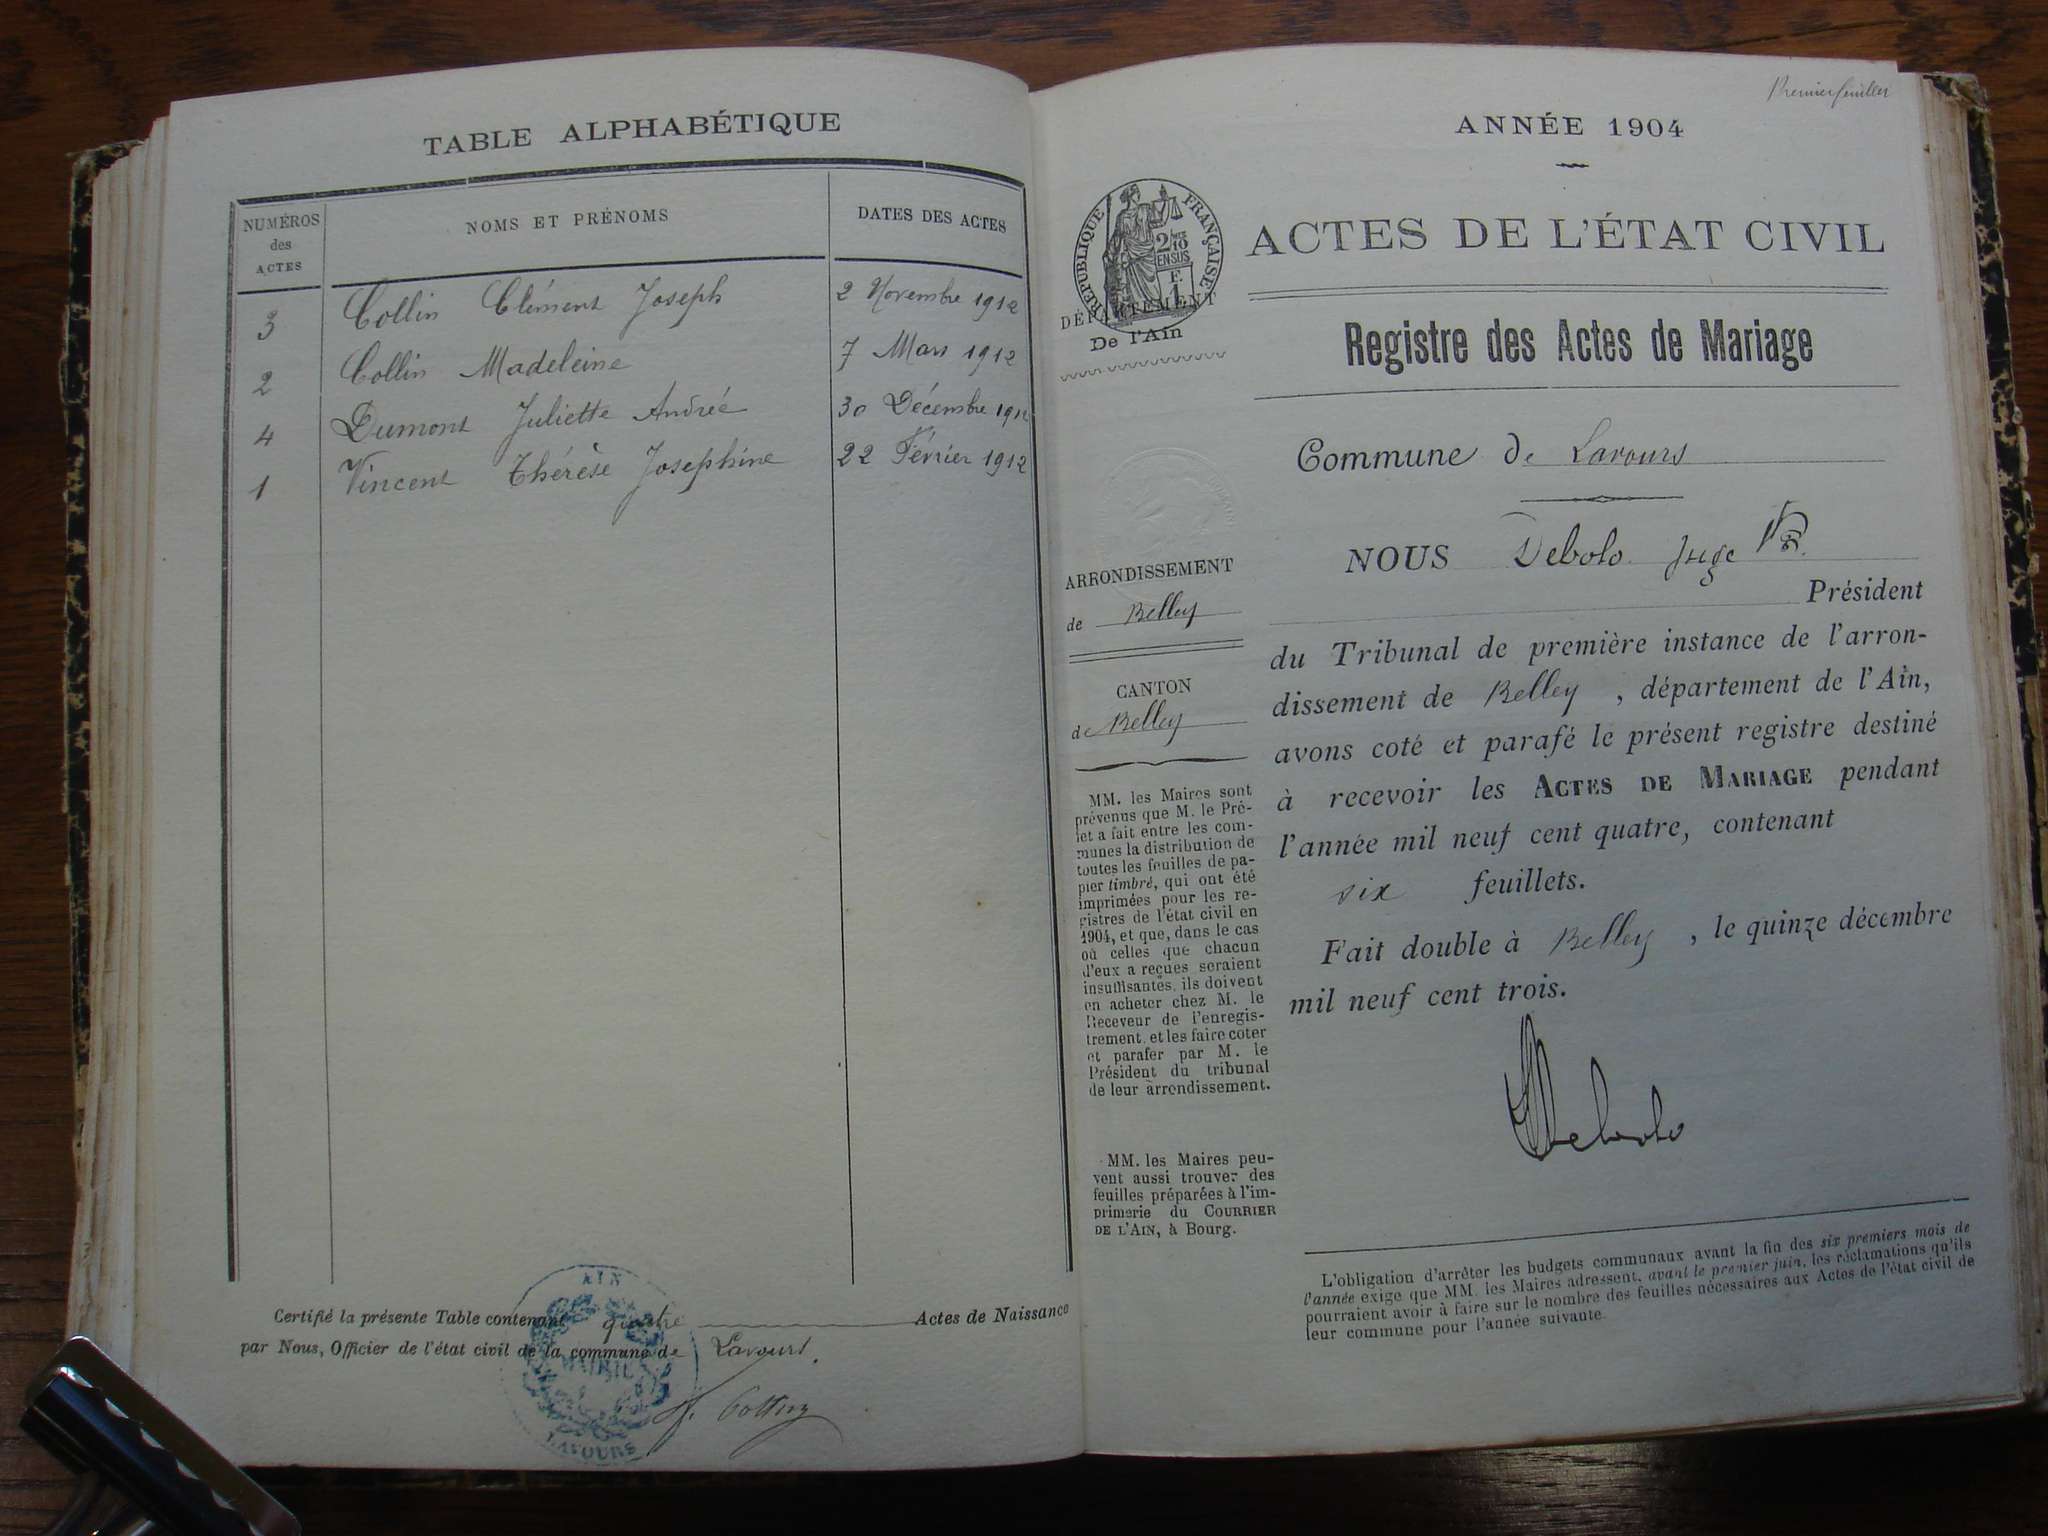 TABLE ALPHABÉTIQUE
NUMÉROS des ACTES
NOMS ET PRÉNOMS
DATES DES ACTES
3 Collin Clément Joseph 2 Novembre 1912
2 Collin Madeleine 7 Mars 1912
4 Dumont Juliette Andrée 30 Décembre 1912
1 Vincent Thérèse Josephine 22 Février 1912
Certifié la présente Table contenant quatre Actes de Naissance
par Nous, Officier de l'état civil de la commune de Lavours.
AIN
MAIRIE
LAVOURS
Premier feuillet
ANNÉE 1904
RÉPUBLIQUE FRANÇAISE
2/10
EN SUS
DÉPARTEMENT
De l'Ain
ACTES DE L'ÉTAT CIVIL
Registre des Actes de Mariage
Commune de Lavours
ARRONDISSEMENT
de Belley
CANTON
de Belley
MM. les Maires sont
prévenus que M. le Pré-
fet a fait entre les com-
munes la distribution de
toutes les feuilles de pa-
pier timbré, qui ont été
imprimées pour les re-
gistres de l'état civil en
1904, et que, dans le cas
où celles que chacun
d'eux a reçues seraient
insuffisantes, ils doivent
en acheter chez M. le
Receveur de l'enregis-
trement, et les faire coter
et parafer par M. le
Président du tribunal
de leur arrondissement.
MM. les Maires peu-
vent aussi trouver des
feuilles préparées à l'im-
primerie du COURRIER
DE L'AIN, à Bourg.
NOUS Debolo Juge
Président
du Tribunal de première instance de l'arron-
dissement de Belley , département de l'Ain,
avons coté et parafé le présent registre destiné
à recevoir les ACTES DE MARIAGE pendant
l'année mil neuf cent quatre, contenant
six feuillets.
Fait double à Belley , le quinze décembre
mil neuf cent trois.
Debolo
L'obligation d'arrêter les budgets communaux avant la fin des six premiers mois de
l'année exige que MM. les Maires adressent, avant le premier juin, les réclamations qu'ils
pourraient avoir à faire sur le nombre des feuilles nécessaires aux Actes de l'état civil de
leur commune pour l'année suivante.